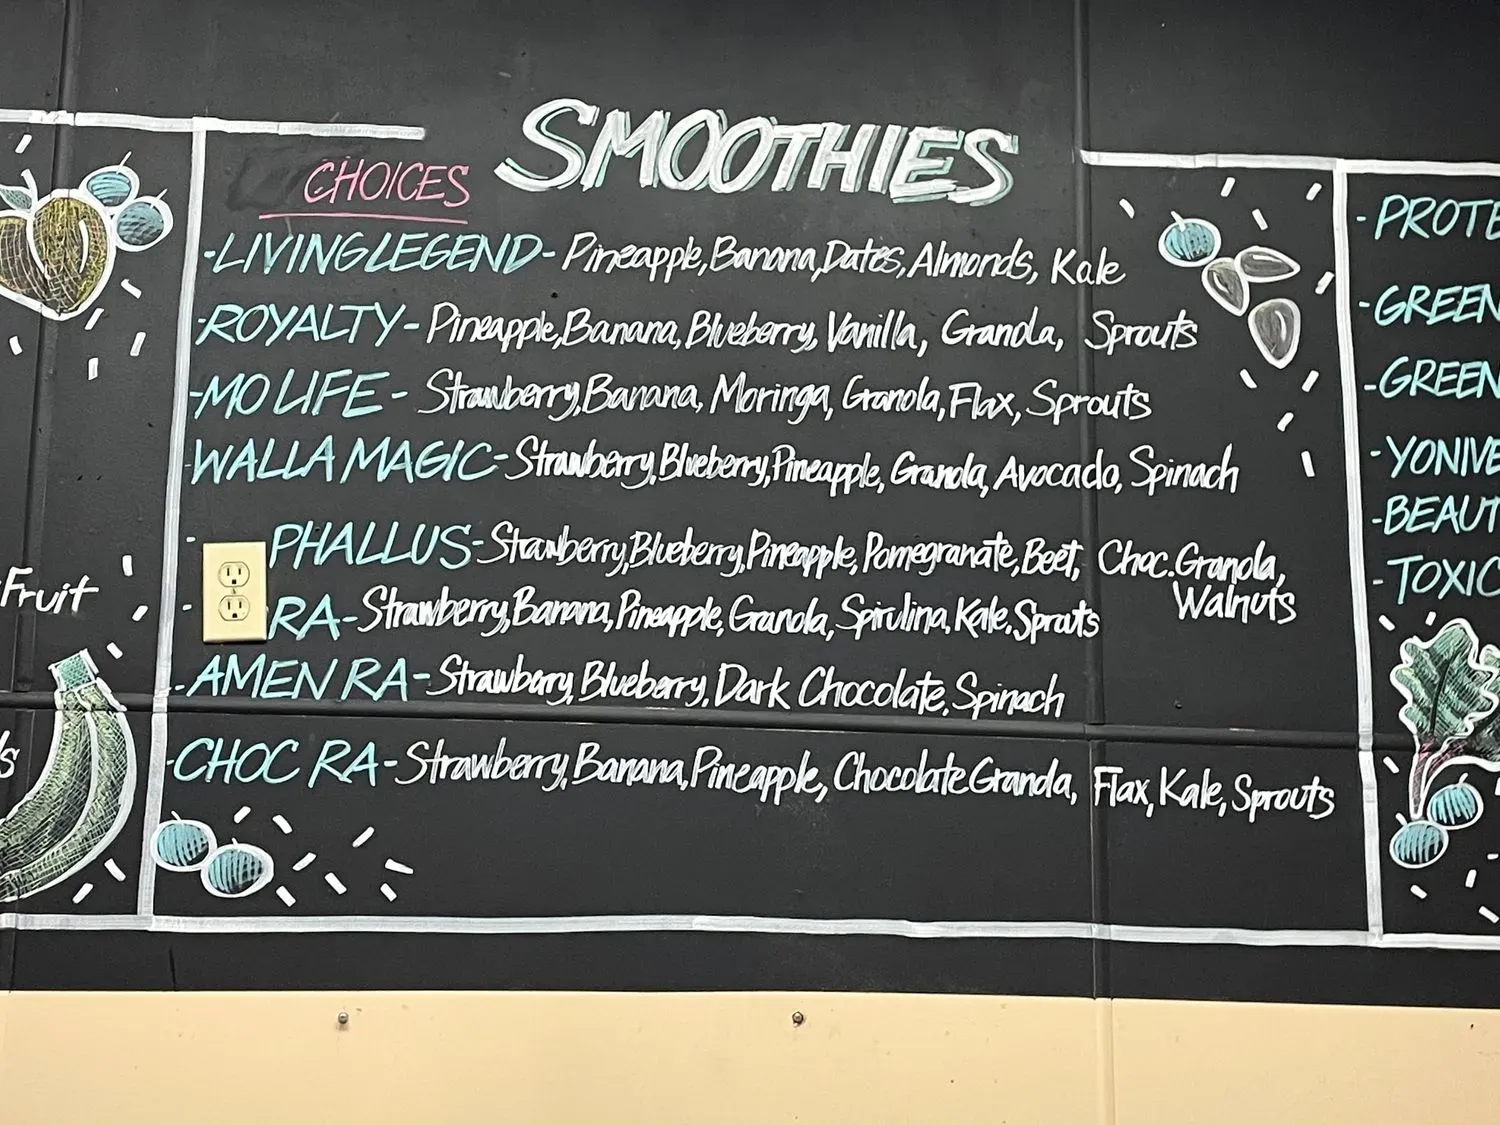 SMOOTHIES
CHOICES
-LIVING LEGEND- Pineapple, Banana, Dates, Almonds, Kale
-ROYALTY- Pineapple, Banana, Blueberry, Vanilla, Granola, Sprouts
-MO LIFE- Strawberry, Banana, Moringa, Granola, Flax, Sprouts
-WALLA MAGIC- Strawberry, Blueberry, Pineapple, Granola, Avocado, Spinach
- PHALLUS- Strawberry, Blueberry, Pineapple, Pomegranate, Beet, Choc. Granola,
Walnuts
- RA- Strawberry, Banana, Pineapple, Granola, Spirulina, Kale, Sprouts
-AMEN RA- Strawberry, Blueberry, Dark Chocolate, Spinach
-CHOC RA- Strawberry, Banana, Pineapple, Chocolate Granola, Flax, Kale, Sprouts
Fruit
-PROTE
-GREEN
-GREEN
-YONIVE
-BEAUT
-TOXIC